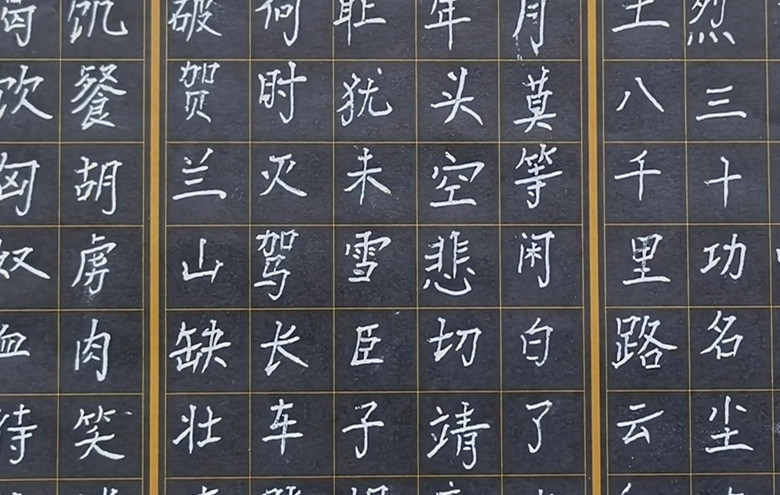 烈三十功名尘
土八千里路云
月莫等闲白了
年头空悲切靖
耻犹未雪臣子
何时灭驾长车
破贺兰山缺壮
饥餐胡虏肉笑
渴饮匈奴血待